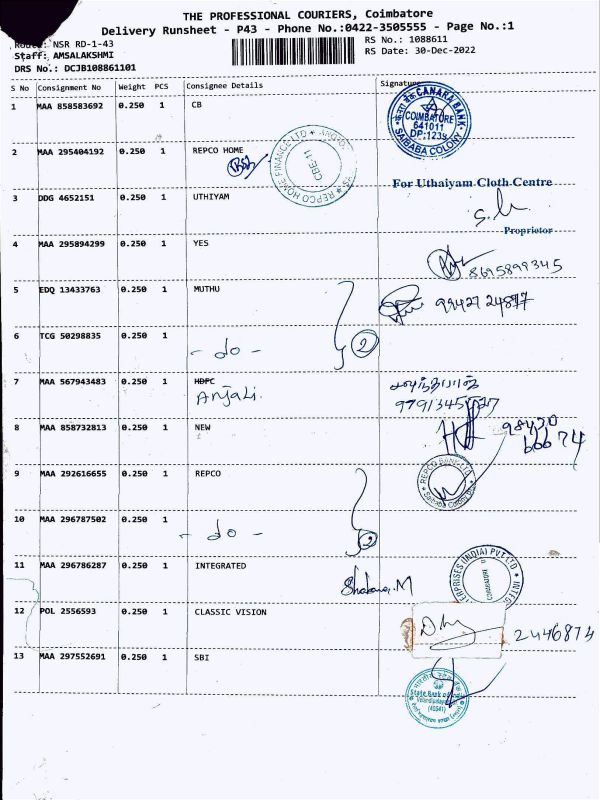 THE PROFESSIONAL COURIERS, Coimbatore
Delivery Runsheet - P43 - Phone No.:0422-3505555 - Page No.:1
Route: NSR RD-1-43
RS No.: 1088611
Staff: AMSALAKSHMI
RS Date: 30-Dec-2022
DRS No.: DCJB108861101
S No Consignment No Weight PCS Consignee Details Signature
1 MAA 858583692 0.250 1 CB
CANARA BANK
COIMBATORE
641011
SAIBABA COLONY
2 MAA 295404192 0.250 1 REPCO HOME
REPCO HOME FINANCE LTD
CBE-11
For Uthaiyam Cloth Centre
3 DDG 4652151 0.250 1 UTHIYAM
Proprietor
4 MAA 295894299 0.250 1 YES
8695899345
5 EDQ 13433763 0.250 1 MUTHU
6 TCG 50298835 0.250 1
- do - 2
7 MAA 567943483 0.250 1 HDFC
Anjali
8 MAA 858732813 0.250 1 NEW
98430
66674
9 MAA 292616655 0.250 1 REPCO
REPCO BANK LTD
Saibaba Colony
10 MAA 296787502 0.250 1
- do - 2
11 MAA 296786287 0.250 1 INTEGRATED
12 POL 2556593 0.250 1 CLASSIC VISION
2446874
13 MAA 297552691 0.250 1 SBI
State Bank of